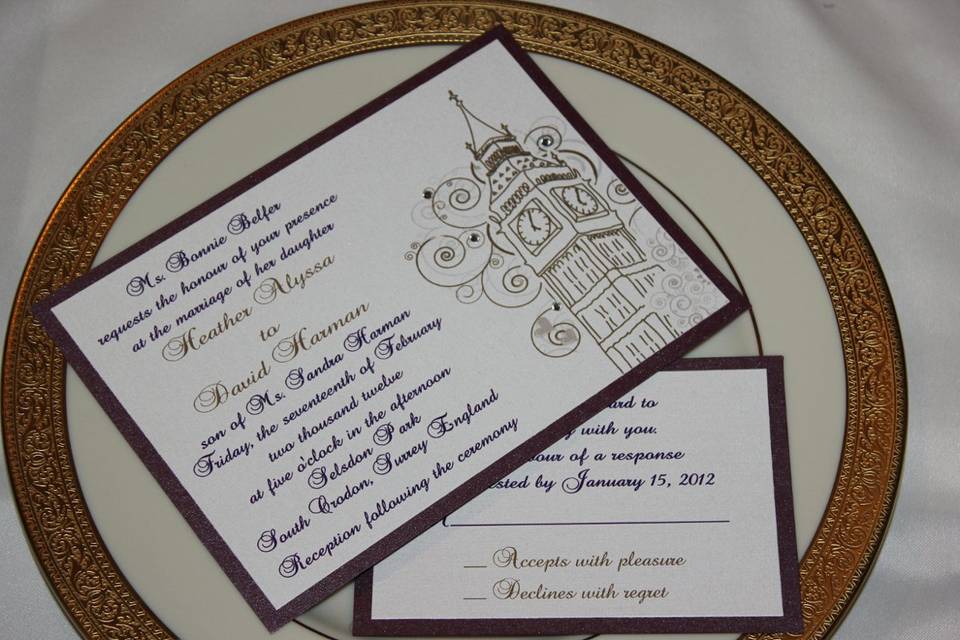 Ms. Bonnie Belfer
requests the honour of your presence
at the marriage of her daughter
Heather Alyssa
to
David Harman
son of Ms. Sandra Harman
Friday, the seventeenth of February
two thousand twelve
at five o'clock in the afternoon
Selsdon Park
South Crodon, Surrey England
Reception following the ceremony
to
with you.
of a response
by January 15, 2012
Accepts with pleasure
Declines with regret